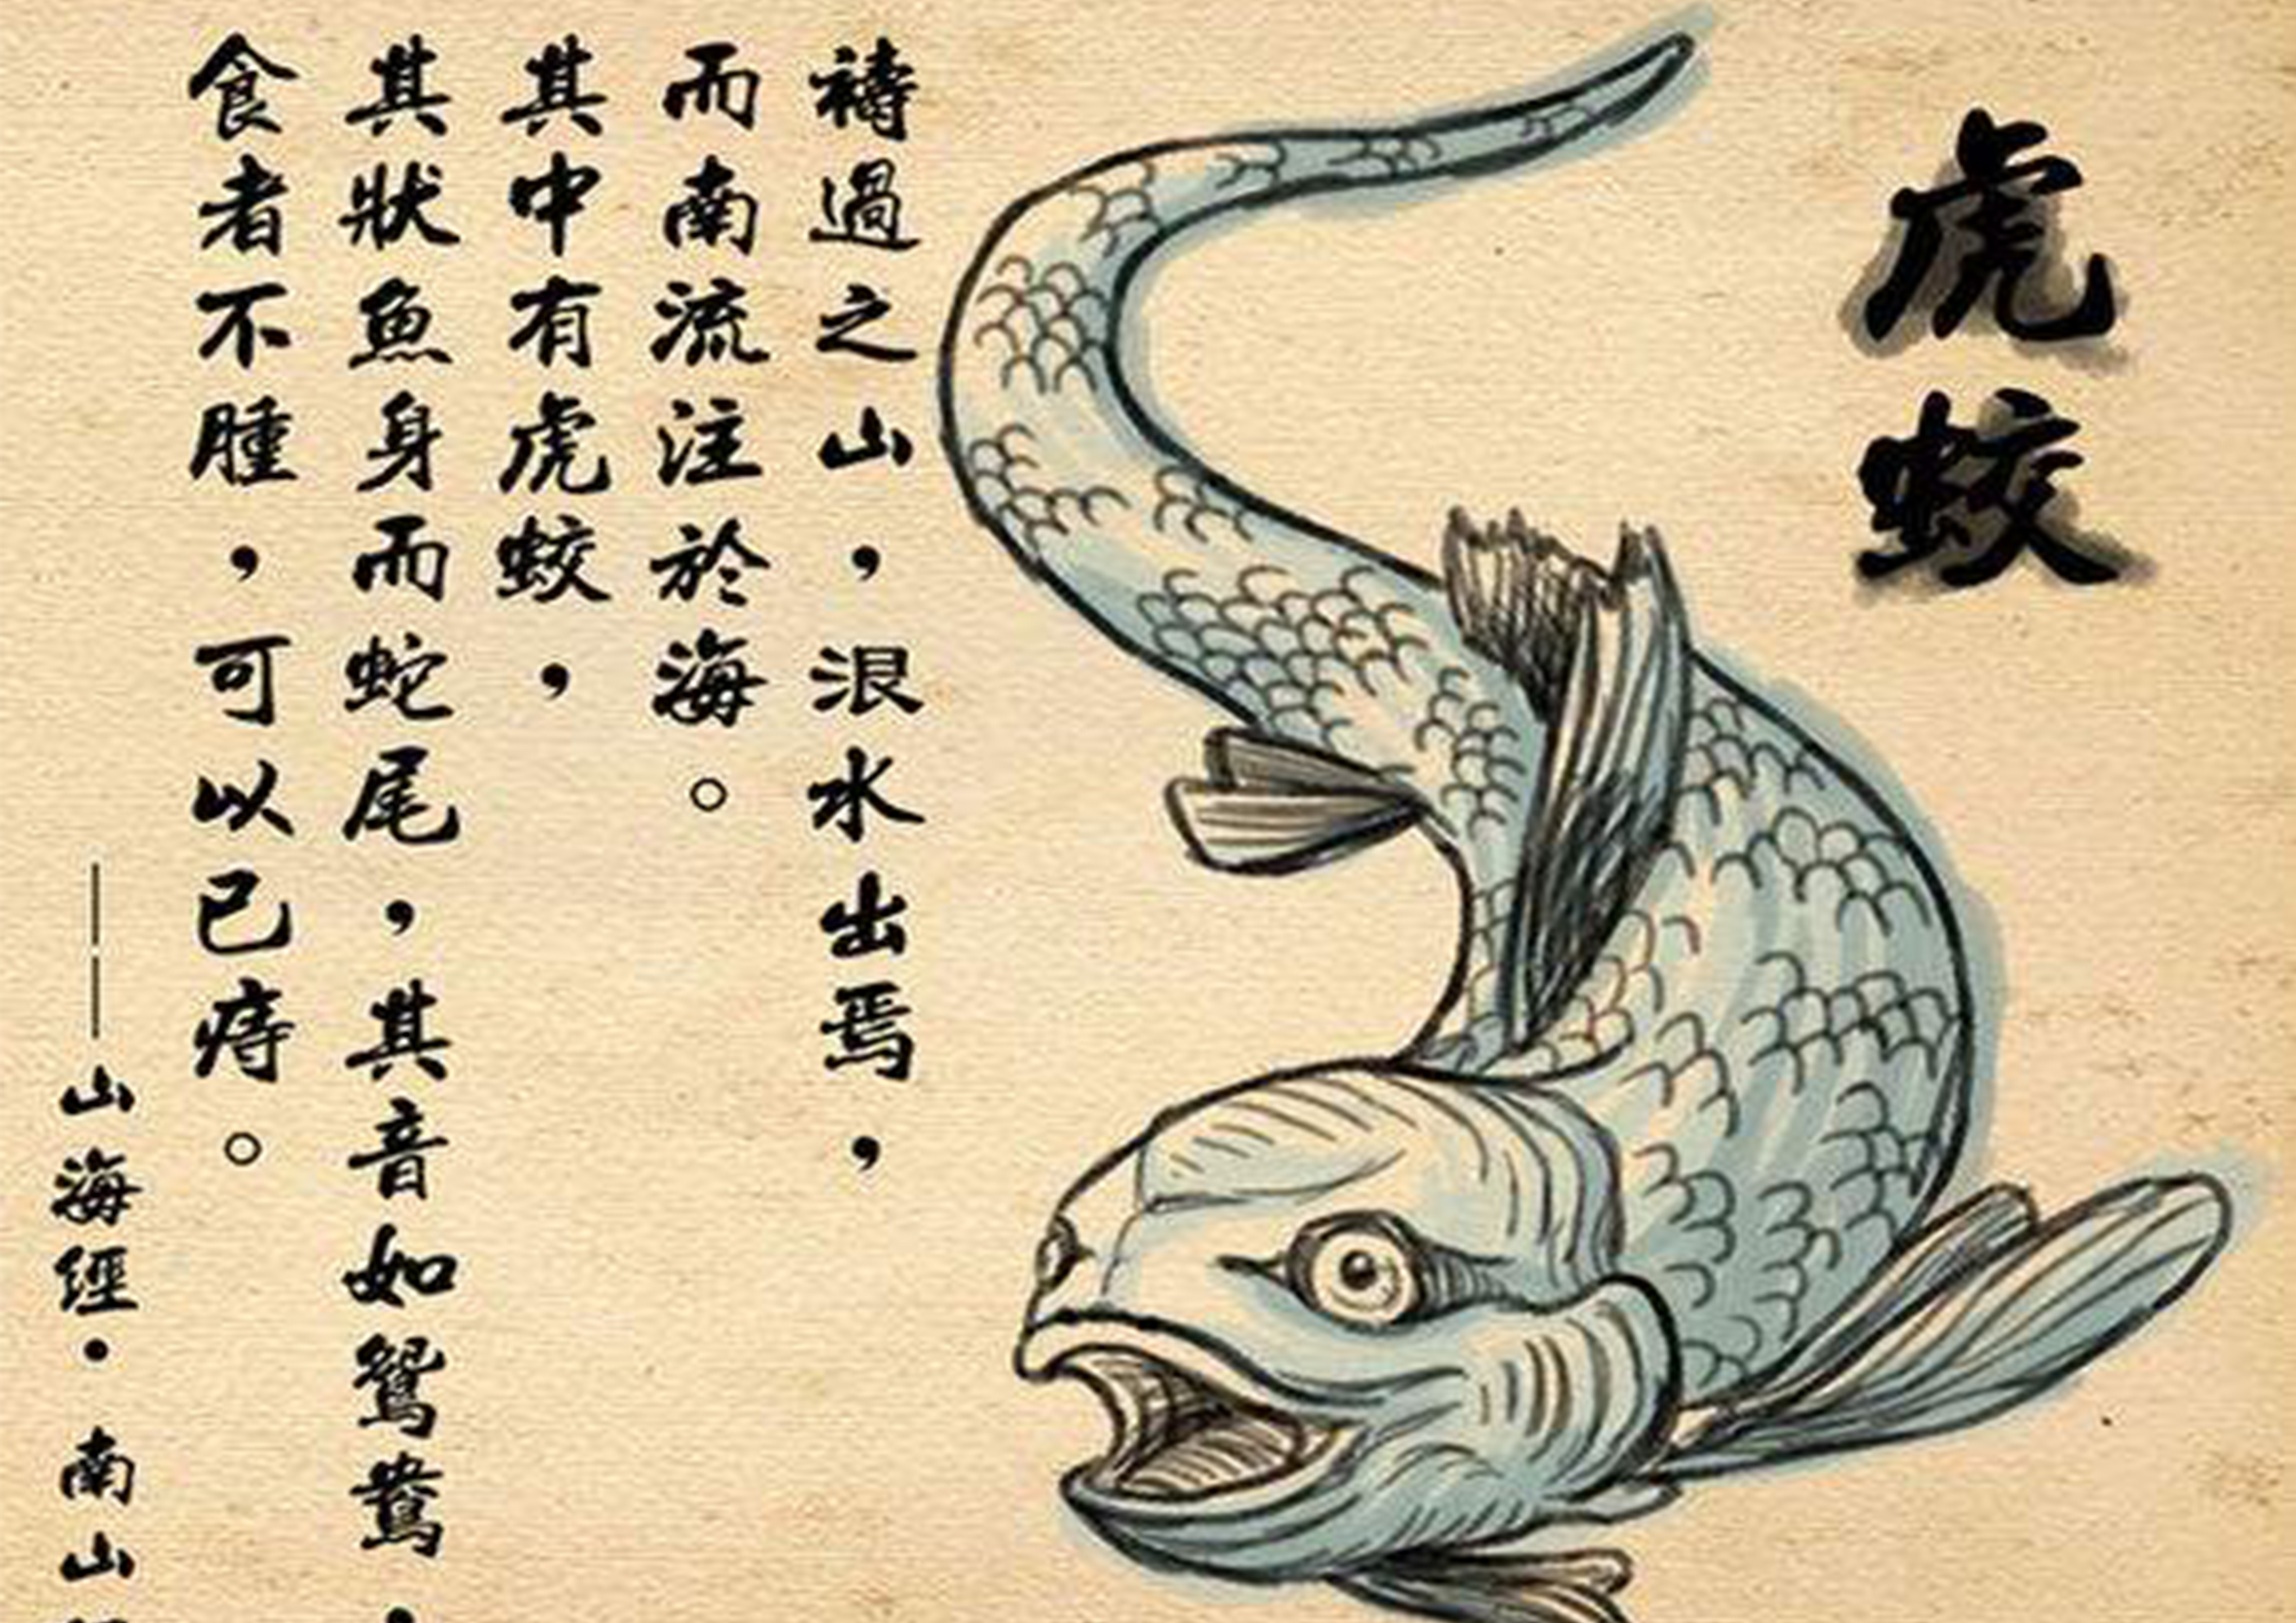 虎蛟
禱過之山，浪水出焉，
而南流注於海。
其中有虎蛟，
其狀魚身而蛇尾，其音如鴛鴦，
食者不腫，可以已痔。
——山海經·南山